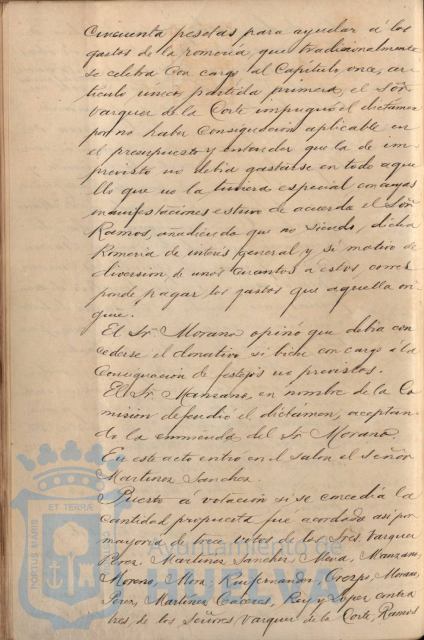 Cincuenta pesetas para ayudar á los
gastos de la romería, que tradicionalmente
se celebra con cargo al Capítulo once, ar-
tículo único partida primera, el Señ
Vazquez de la Corte impugnó el dictamen
por no haber Consignación aplicable en
el presupuesto y entender que la de im-
previsto no debia gastarse en todo aque
llo que no la tuviera especial con cuyas
manifestaciones estuvo de acuerdo el Señ
Ramos, añadiendo que no siendo, dicha
Romeria de interés general y si motivo de
diversion de unos cuantos á estos corres
ponde, pagar los gastos que aquella ori
gine.
El Sr. Morano opinó que debia con
cederse el donativo si bien con cargo á la
Consignación de festejos no previstos.
El Sr. Manzano, en nombre de la Co
mision defendió el dictámen, aceptan
do la enmienda del Sr Morano.
En este acto entró en el salon el señor
Martinez Sanchez.
Puesto á votación si se concedia la
Cantidad propuesta fué acordado asi por
mayoria de trece votos de los Sres. Vazquez
Perez, Martinez Sanchez, Mena, Manzano,
Moreno, Mora, Crespo, Morano,
Perez, Martinez Caceres, Rey y Lopez contra
tres, de los Señores Vazquez de la Corte, Ramos
PORTUS MARIS ET TERRÆ
Ayuntamiento de